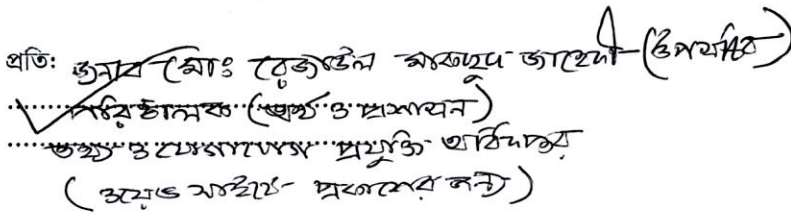 প্রতি: জনাব মোঃ রেজাউল মাকছুদ জাহেদী (উপসচিব)
পরিচালক (অর্থ ও প্রশাসন)
তথ্য ও যোগাযোগ প্রযুক্তি অধিদপ্তর
(ওয়েব সাইটে প্রকাশের জন্য)